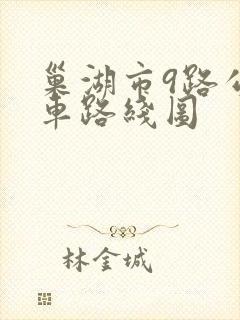 巢湖市9路公
車路綫圖
林金城